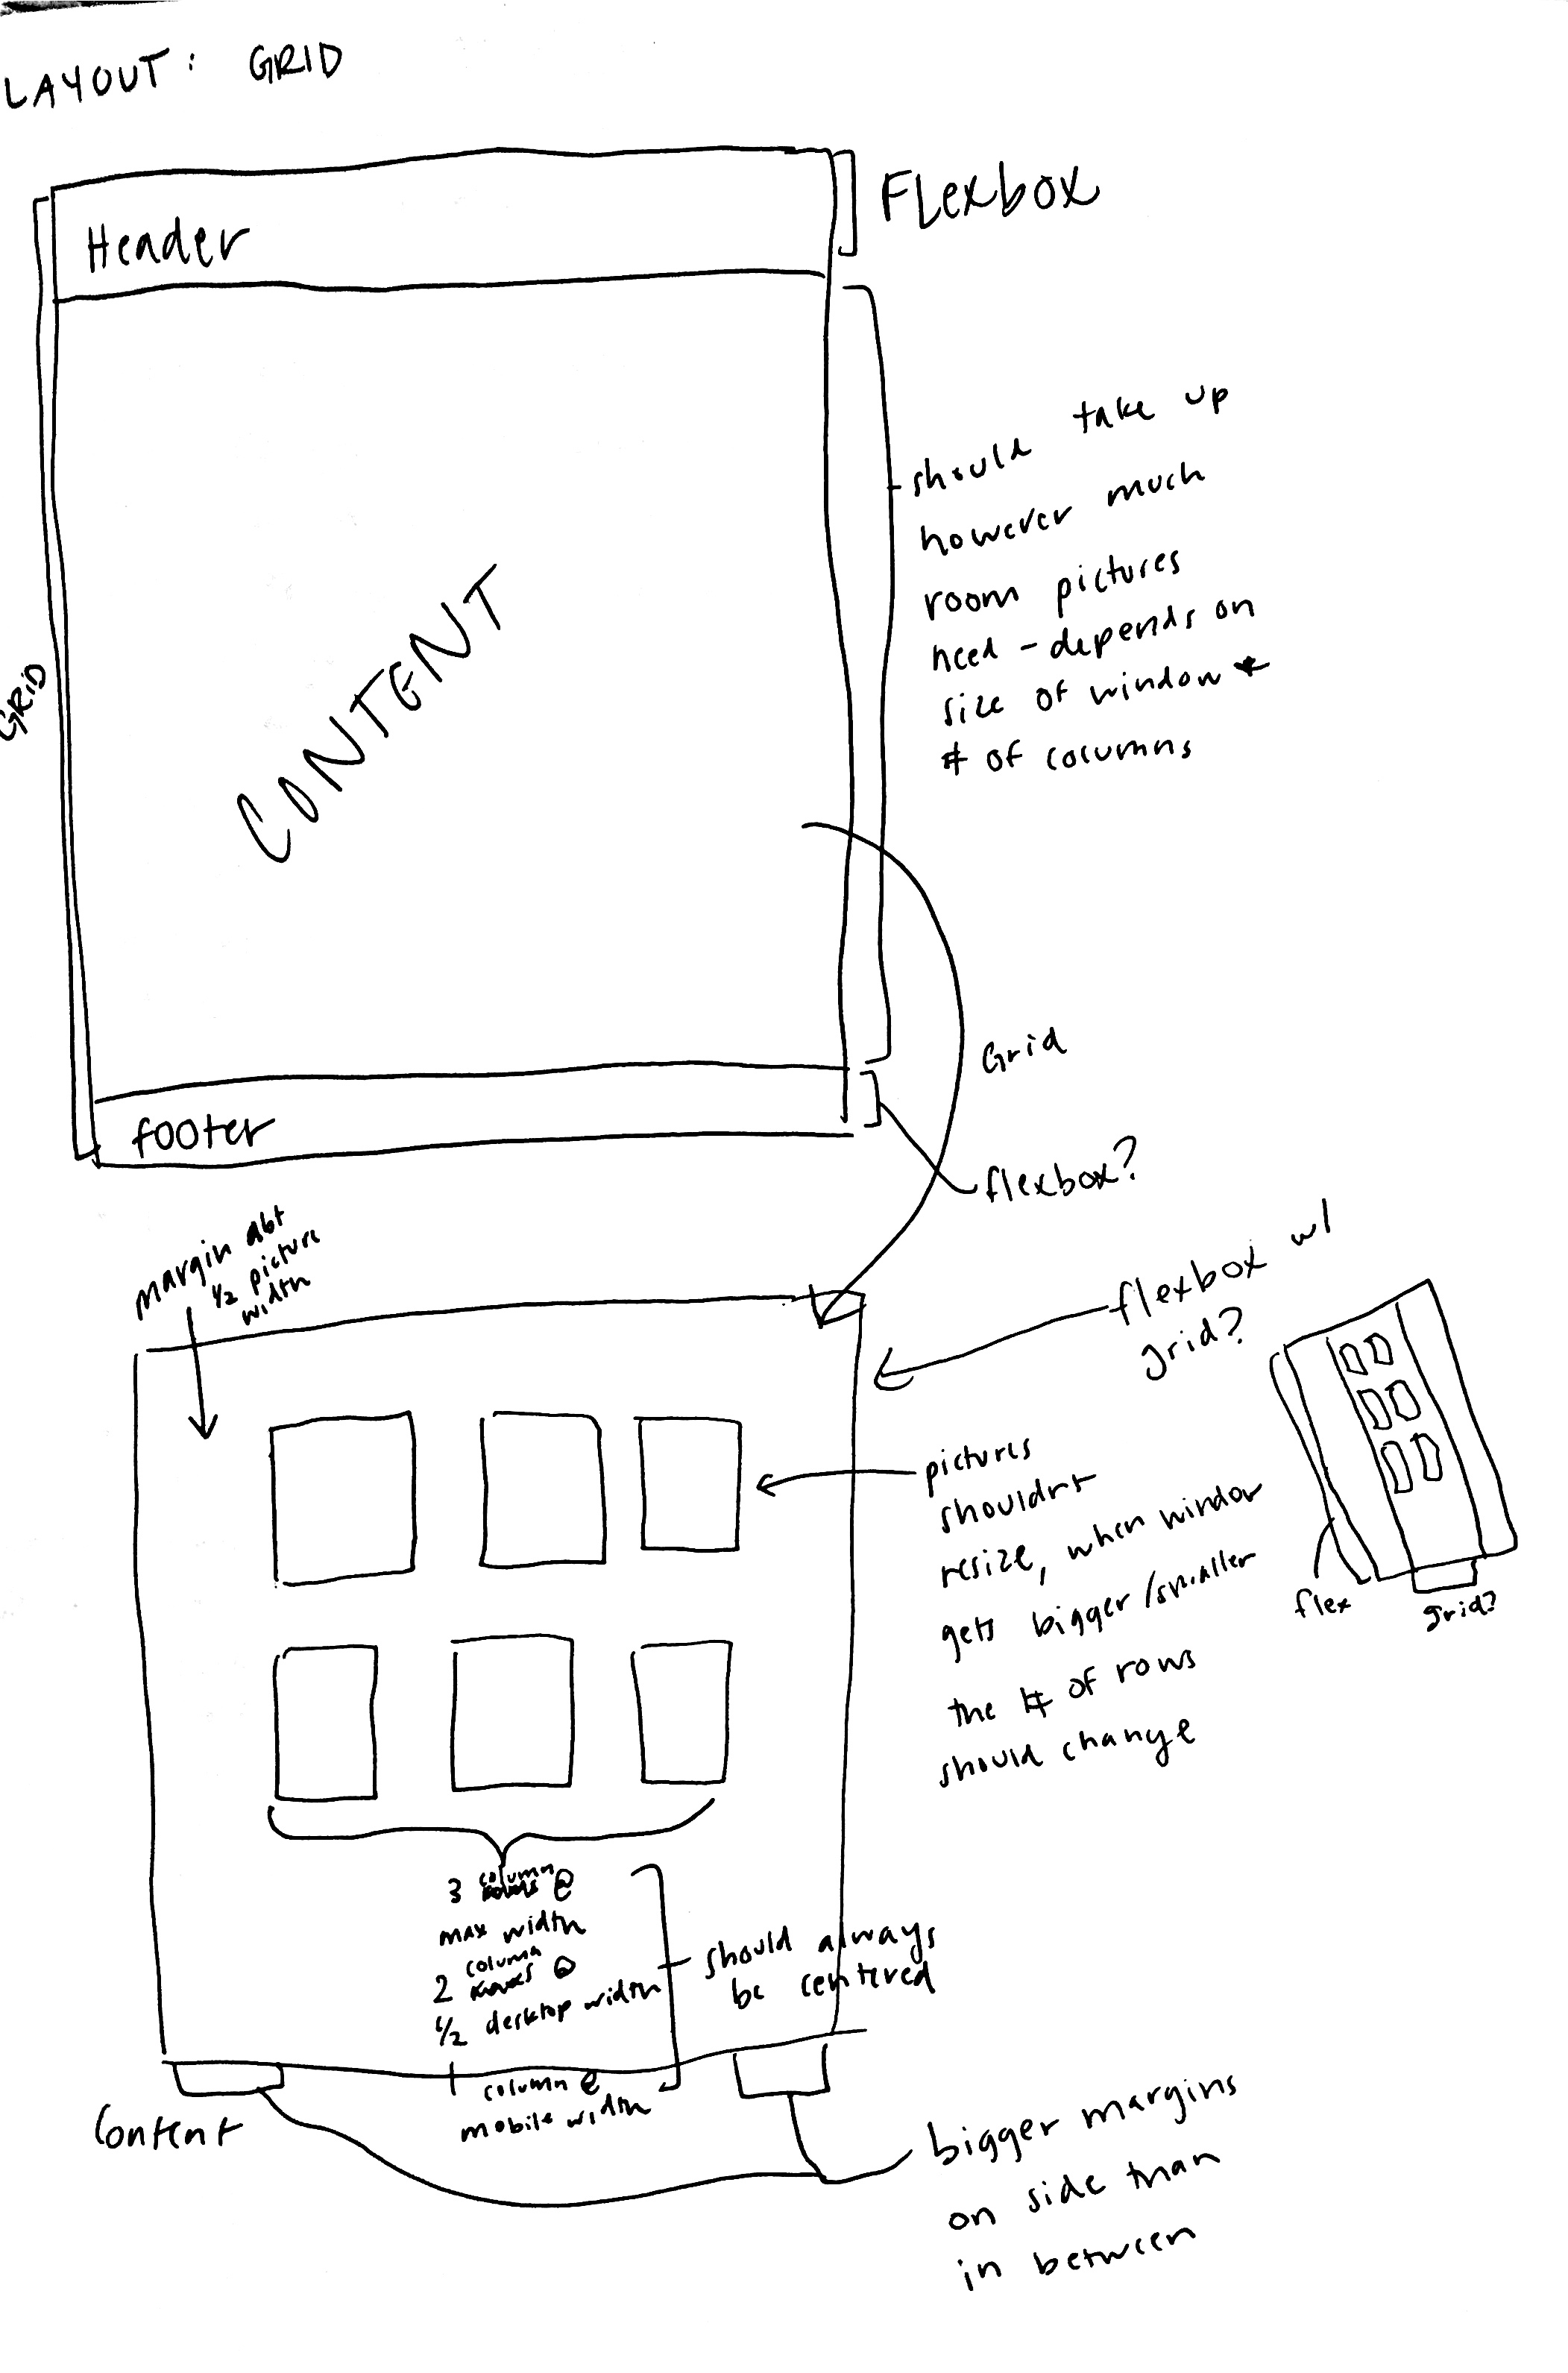 LAYOUT: GRID
Header
FLexbox
GRID
CONTENT
should take up
however much
room pictures
need - depends on
size of window +
# of columns
Grid
footer
flexbox?
margin abt
1/2 picture
width
flexbox w/
grid?
flex
grid?
pictures
shouldn't
resize, when window
gets bigger/smaller
the # of rows
should change
3 column @
max width
2 column @
1/2 desktop width
1 column @
mobile width
should always
be centered
Content
bigger margins
on side than
in between